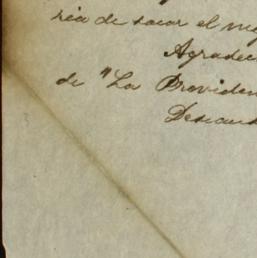 ria de sacar el mej
Agradec
de "La Providen
Descans